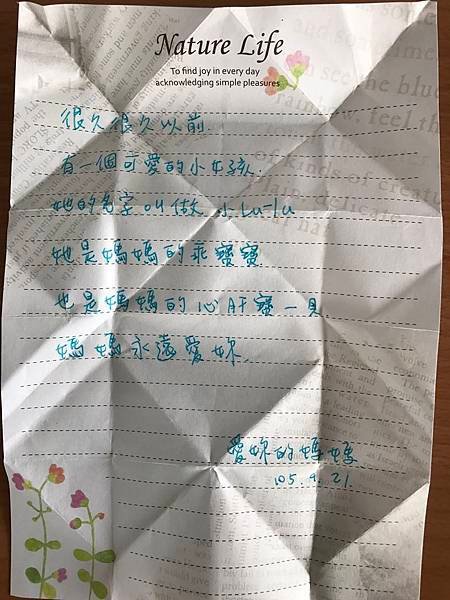 Nature Life
To find joy in every day
acknowledging simple pleasures
很久很久以前
有一個可愛的小女孩
她的名字叫做 小Lu-lu
她是媽媽的乖寶寶
也是媽媽的心肝寶一貝
媽媽永遠愛妳
愛妳的媽媽
105.4.21